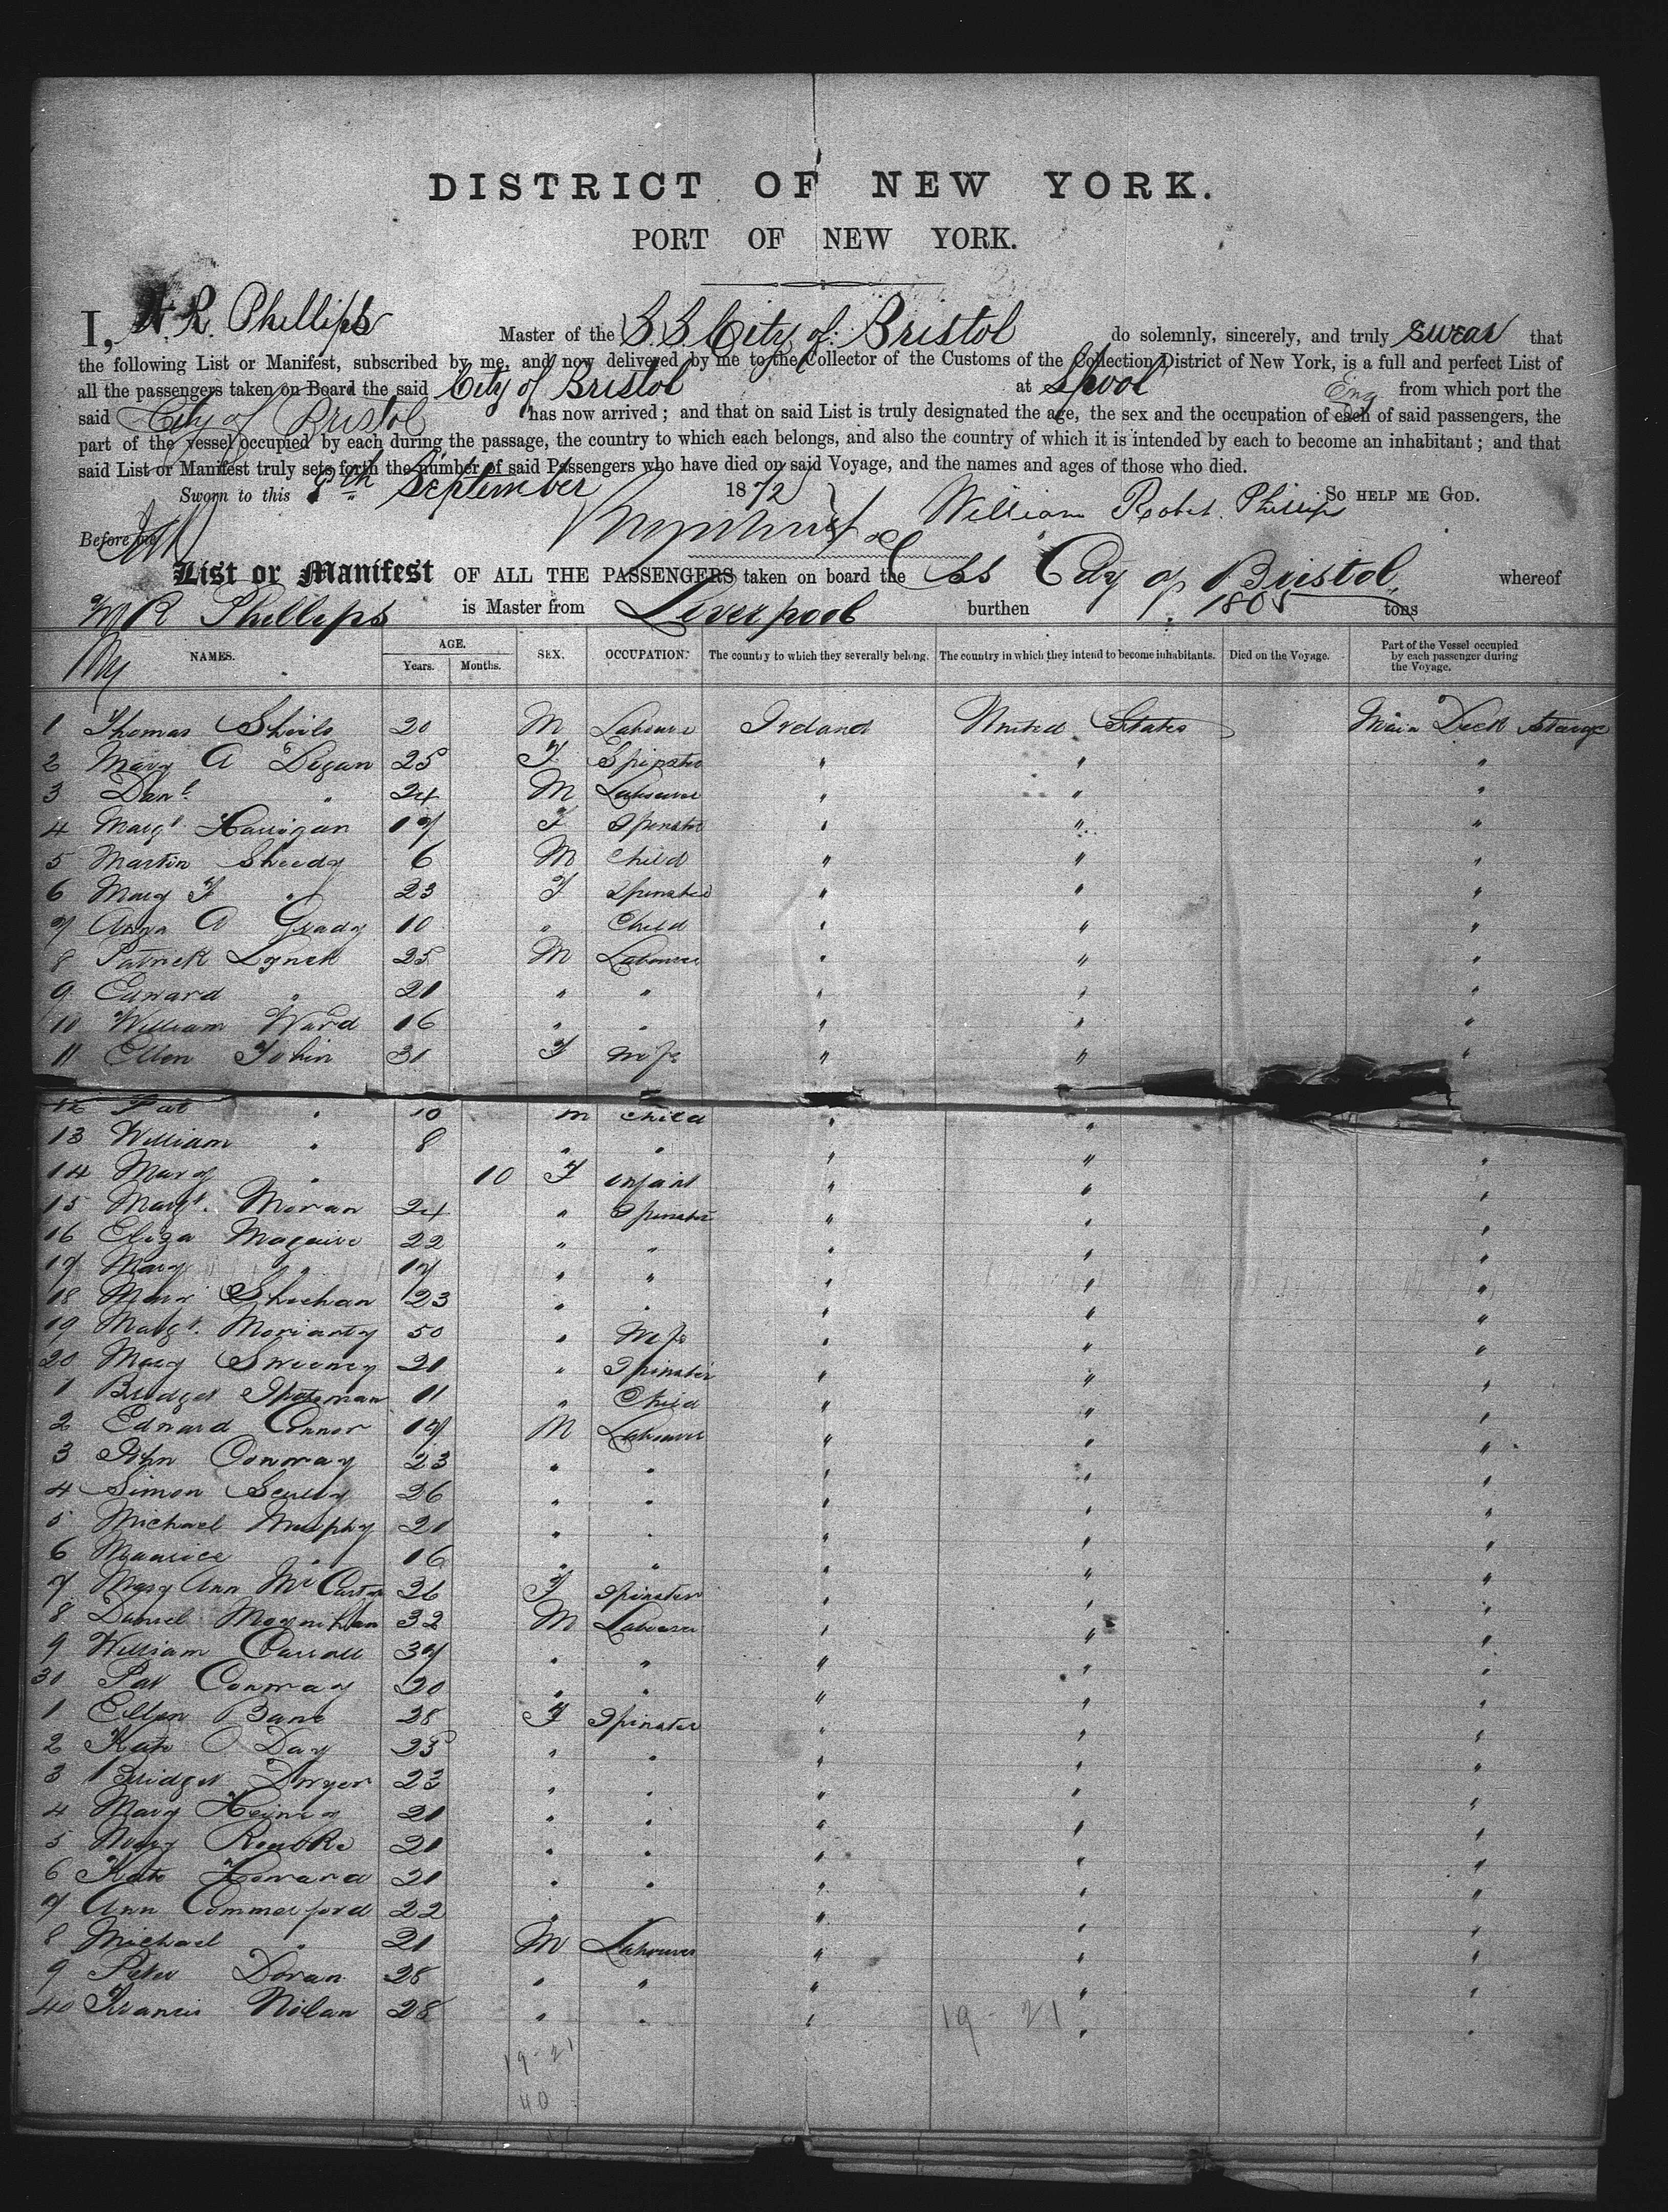 DISTRICT OF NEW YORK.
PORT OF NEW YORK.
I, W. R. Phillips Master of the S.S City of Bristol do solemnly, sincerely, and truly swear that
the following List or Manifest, subscribed by me, and now delivered by me to the Collector of the Customs of the Collection District of New York, is a full and perfect List of
all the passengers taken on Board the said City of Bristol at Lpool Eng from which port the
said City of Bristol has now arrived; and that on said List is truly designated the age, the sex and the occupation of each of said passengers, the
part of the vessel occupied by each during the passage, the country to which each belongs, and also the country of which it is intended by each to become an inhabitant; and that
said List or Manifest truly sets forth the number of said Passengers who have died on said Voyage, and the names and ages of those who died.
Sworn to this 9th September 1872 So HELP ME GOD.
William Robt. Phillips
Before me
List or Manifest OF ALL THE PASSENGERS taken on board the SS City of Bristol whereof
W R Phillips is Master from Liverpool burthen 1805 tons
NAMES. AGE. Years. Months. SEX. OCCUPATION. The country to which they severally belong. The country in which they intend to become inhabitants. Died on the Voyage. Part of the Vessel occupied by each passenger during the Voyage.
1 Thomas Shiels 20 M Labourer Ireland United States Main Deck Steerage
2 Mary A Degan 25 F Spinster " " "
3 Danl. " 24 M Labourer " " "
4 Margt Harrigan 17 F Spinster " " "
5 Martin Sheedy 6 M Child " " "
6 Mary F " 23 F Spinster " " "
7 Anna A Grady 10 " Child " " "
8 Patrick Lynch 25 M Labourer " " "
9 Edward " 21 " " " " "
10 William Ward 16 " " " " "
11 Ellen Tobin 31 F Wife " " "
12 Pat " 10 M Child " " "
13 William " 8 " " " " "
14 Mary " 10 F Infant " " "
15 Margt. Moran 24 " Spinster " " "
16 Eliza Maguire 22 " " " " "
17 Mary " 17 " " " " "
18 Mary Sheehan 23 " " " " "
19 Margt. Moriarty 50 " Wife " " "
20 Mary Sweeney 21 " Spinster " " "
1 Bridget 11 " Child " " "
2 Edward Connor 17 M Labourer " " "
3 John Conway 23 " " " " "
4 Simon Scully 26 " " " " "
5 Michael Murphy 20 " " " " "
6 Maurice " 16 " " " " "
7 Mary Ann McCarty 26 F Spinster " " "
8 Daniel Moynihan 32 M Labourer " " "
9 William Carroll 37 " " " " "
30 Pat Conway 20 " " " " "
1 Ellen Bane 28 F Spinster " " "
2 Kate O Day 25 " " " " "
3 Bridget Dwyer 23 " " " " "
4 Mary 21 " " " " "
5 Mary Rourke 21 " " " " "
6 Kate Howard 21 " " " " "
7 Ann Commerford 22 " " " " "
8 Michael " 21 M Labourer " " "
9 Peter Doran 28 " " " " "
40 Francis Nolan 28 " " " " "
19-21
19-21
40